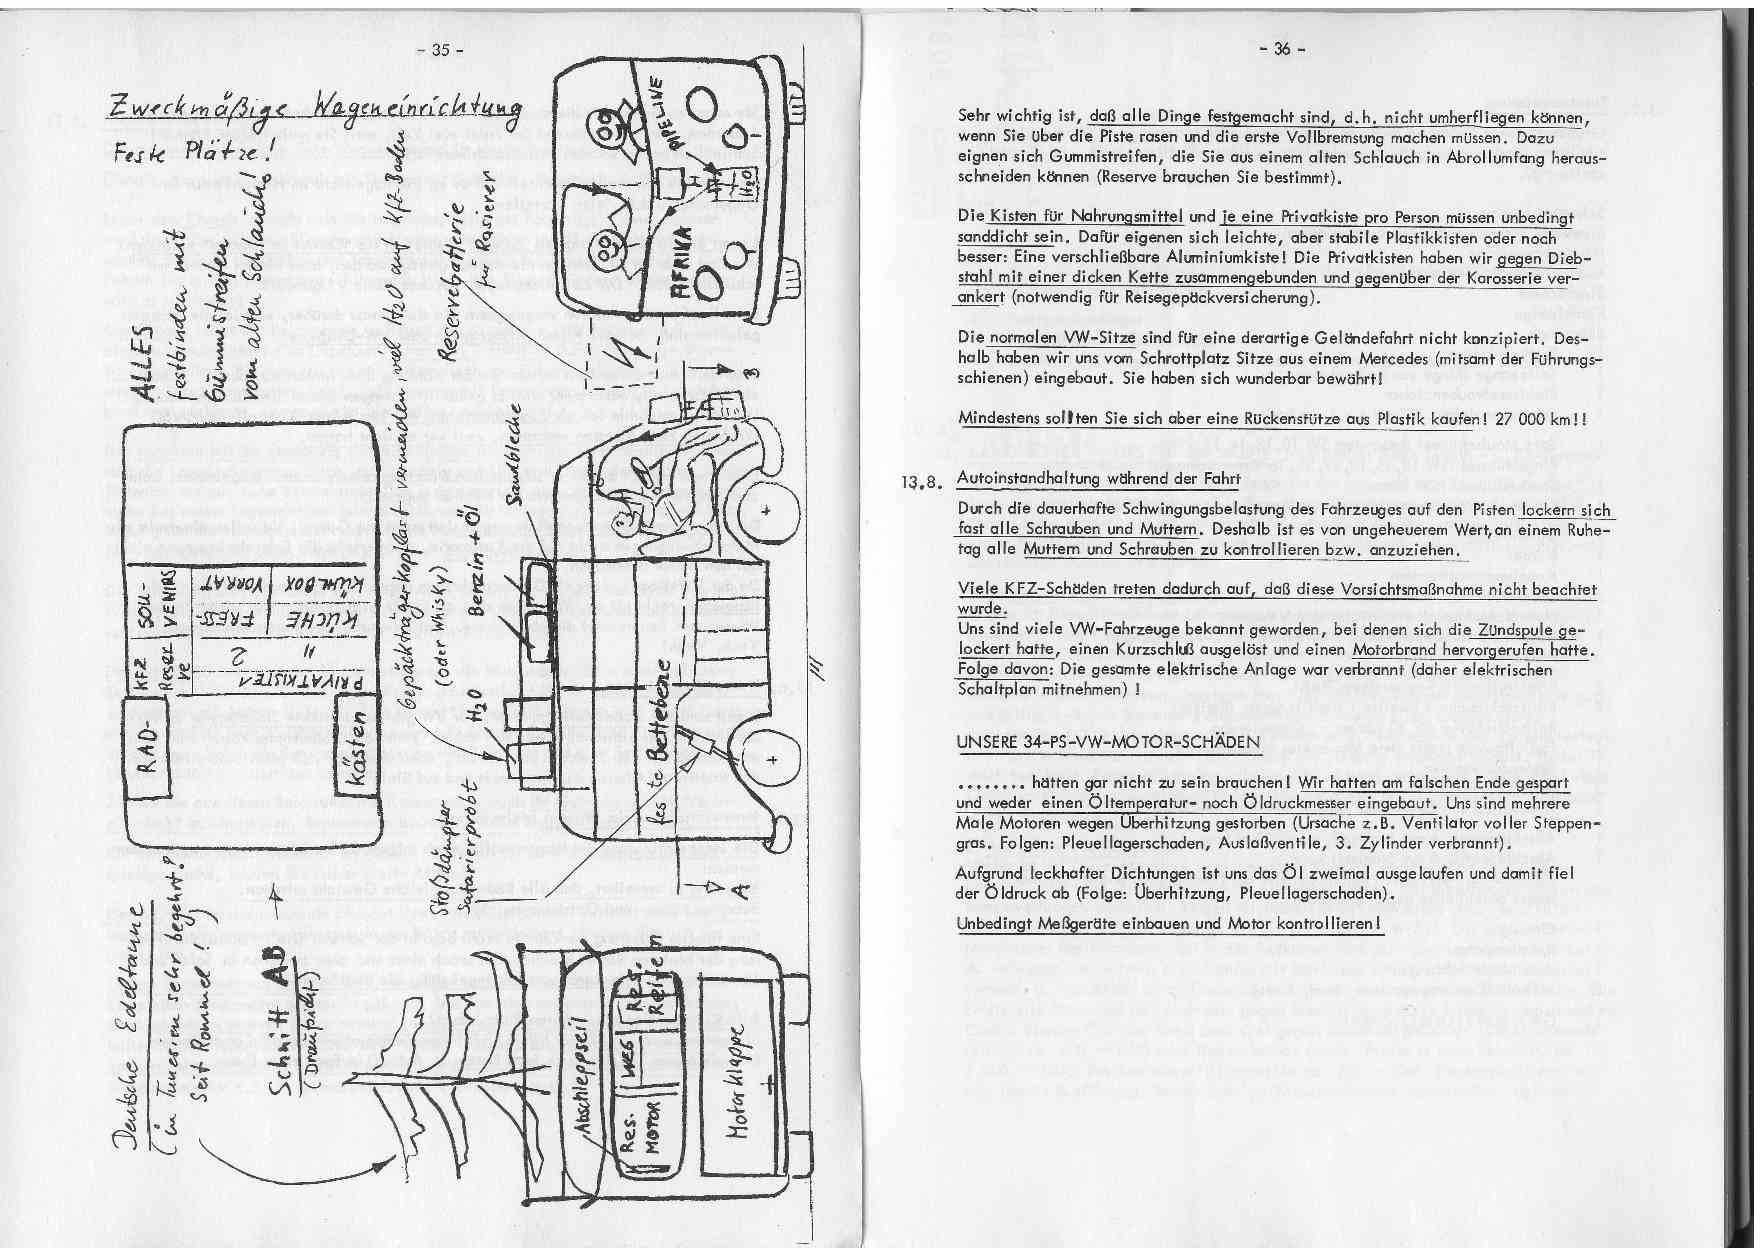 - 35 -
Zweckmäßige Wageneinrichtung
Feste Plätze!
ALLES
festbinden mit
Gummistreifen
vom alten Schlauch!
Gepäckträgerkopflast vermeiden; viel H2O auf Kfz-Boden
(oder Whisky)
Reservebatterie
für Rasierer
PIPELINE
AFRIKA
H2O
RAD-
kästen
KFZ
Reser
ve
SOU-
VENIRS
PRIVATKISTEN
2
"
KÜCHE
FRESS-
VORRAT
KÜHLBOX
H2O
Benzin + Öl
Sandbleche
feste Bettebene
Stoßdämpfer
Safarierprobt
A
B
Deutsche Edeltanne
(in Tunesien sehr begehrt?
seit Rommel!)
Schnitt AB
(Draufsicht)
Abschleppseil
Res.
MOTOR
Res.
Reifen
Motorklappe
- 36 -
Sehr wichtig ist, daß alle Dinge festgemacht sind, d.h. nicht umherfliegen können,
wenn Sie über die Piste rasen und die erste Vollbremsung machen müssen. Dazu
eignen sich Gummistreifen, die Sie aus einem alten Schlauch in Abrollumfang heraus-
schneiden können (Reserve brauchen Sie bestimmt).
Die Kisten für Nahrungsmittel und je eine Privatkiste pro Person müssen unbedingt
sanddicht sein. Dafür eigenen sich leichte, aber stabile Plastikkisten oder noch
besser: Eine verschließbare Aluminiumkiste! Die Privatkisten haben wir gegen Dieb-
stahl mit einer dicken Kette zusammengebunden und gegenüber der Karosserie ver-
ankert (notwendig für Reisegepäckversicherung).
Die normalen VW-Sitze sind für eine derartige Geländefahrt nicht konzipiert. Des-
halb haben wir uns vom Schrottplatz Sitze aus einem Mercedes (mitsamt der Führungs-
schienen) eingebaut. Sie haben sich wunderbar bewährt!
Mindestens sollten Sie sich aber eine Rückenstütze aus Plastik kaufen! 27 000 km!!
13.8. Autoinstandhaltung während der Fahrt
Durch die dauerhafte Schwingungsbelastung des Fahrzeuges auf den Pisten lockern sich
fast alle Schrauben und Muttern. Deshalb ist es von ungeheuerem Wert, an einem Ruhe-
tag alle Muttern und Schrauben zu kontrollieren bzw. anzuziehen.
Viele KFZ-Schäden treten dadurch auf, daß diese Vorsichtsmaßnahme nicht beachtet
wurde.
Uns sind viele VW-Fahrzeuge bekannt geworden, bei denen sich die Zündspule ge-
lockert hatte, einen Kurzschluß ausgelöst und einen Motorbrand hervorgerufen hatte.
Folge davon: Die gesamte elektrische Anlage war verbrannt (daher elektrischen
Schaltplan mitnehmen) !
UNSERE 34-PS-VW-MOTOR-SCHÄDEN
........ hätten gar nicht zu sein brauchen! Wir hatten am falschen Ende gespart
und weder einen Öltemperatur- noch Öldruckmesser eingebaut. Uns sind mehrere
Male Motoren wegen Überhitzung gestorben (Ursache z.B. Ventilator voller Steppen-
gras. Folgen: Pleuellagerschaden, Auslaßventile, 3. Zylinder verbrannt).
Aufgrund leckhafter Dichtungen ist uns das Öl zweimal ausgelaufen und damit fiel
der Öldruck ab (Folge: Überhitzung, Pleuellagerschaden).
Unbedingt Meßgeräte einbauen und Motor kontrollieren!